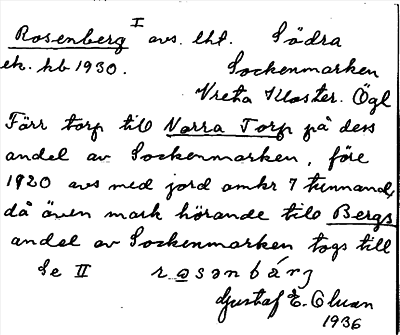 Rosenberg I avs. lht. Södra
ek. kb 1930. Sockenmarken
Vreta Kloster. Ögl
Förr torp till Norra Torp på dess
andel av Sockenmarken, före
1920 avs med jord omkr 7 tunnand,
då även mark hörande till Bergs
andel av Sockenmarken togs till
Se II
Gustaf E.
1936